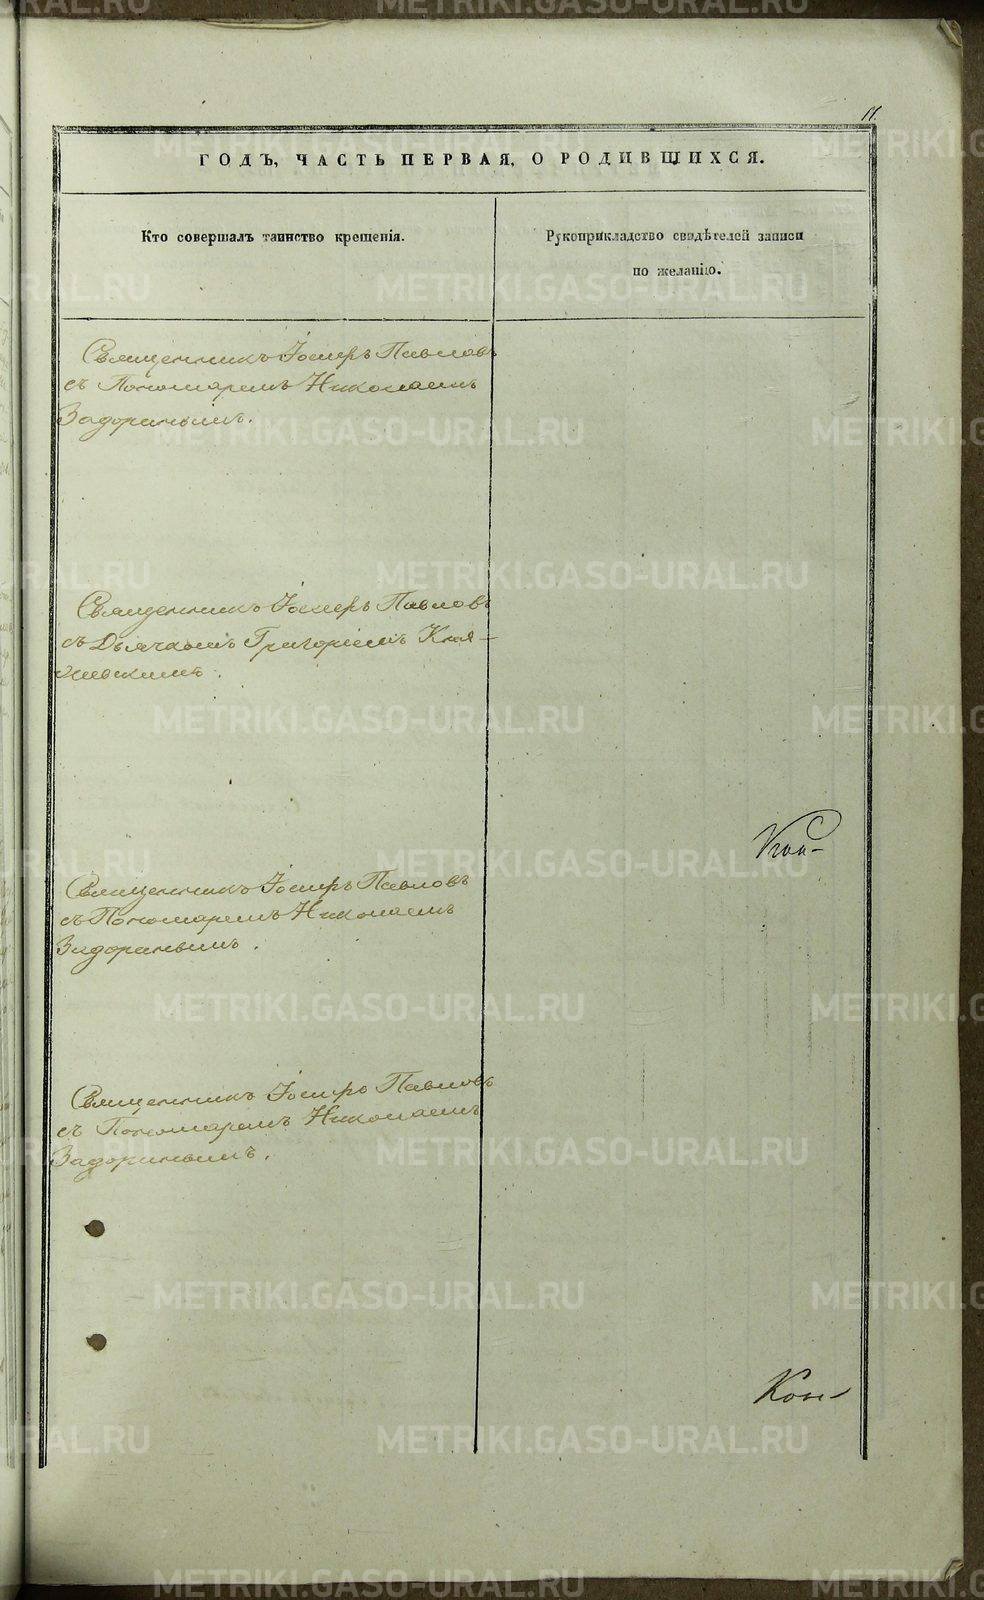 11.
ГОДЪ, ЧАСТЬ ПЕРВАЯ, О РОДИВШИХСЯ.
Кто совершалъ таинство крещенія.
Рукоприкладство свидѣтелей записи
по желанію.
Священникъ Іосифъ Павловъ
съ Пономаремъ Николаемъ
Задоринымъ.
Священникъ Іосифъ Павловъ
съ Дьячкомъ Григоріемъ Кня-
жевскимъ.
Священникъ Іосифъ Павловъ
съ Пономаремъ Николаемъ
Задоринымъ.
Священникъ Іосифъ Павловъ
съ Пономаремъ Николаемъ
Задоринымъ.
METRIKI.GASO-URAL.RU